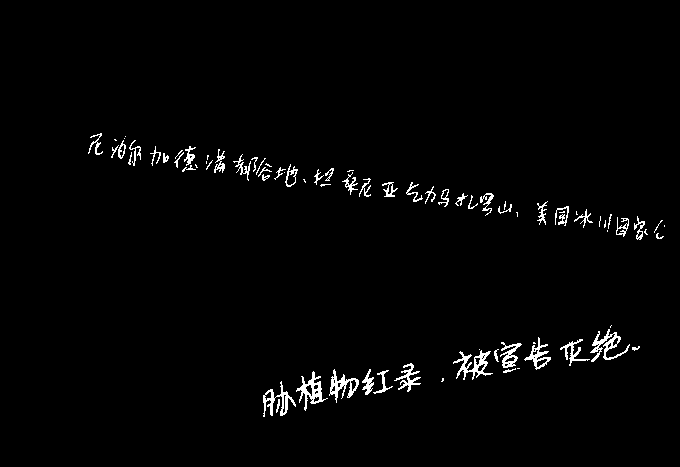 尼泊尔加德满都谷地、坦桑尼亚乞力马扎罗山、美国冰川国家公
脉植物红录，被宣告灭绝。